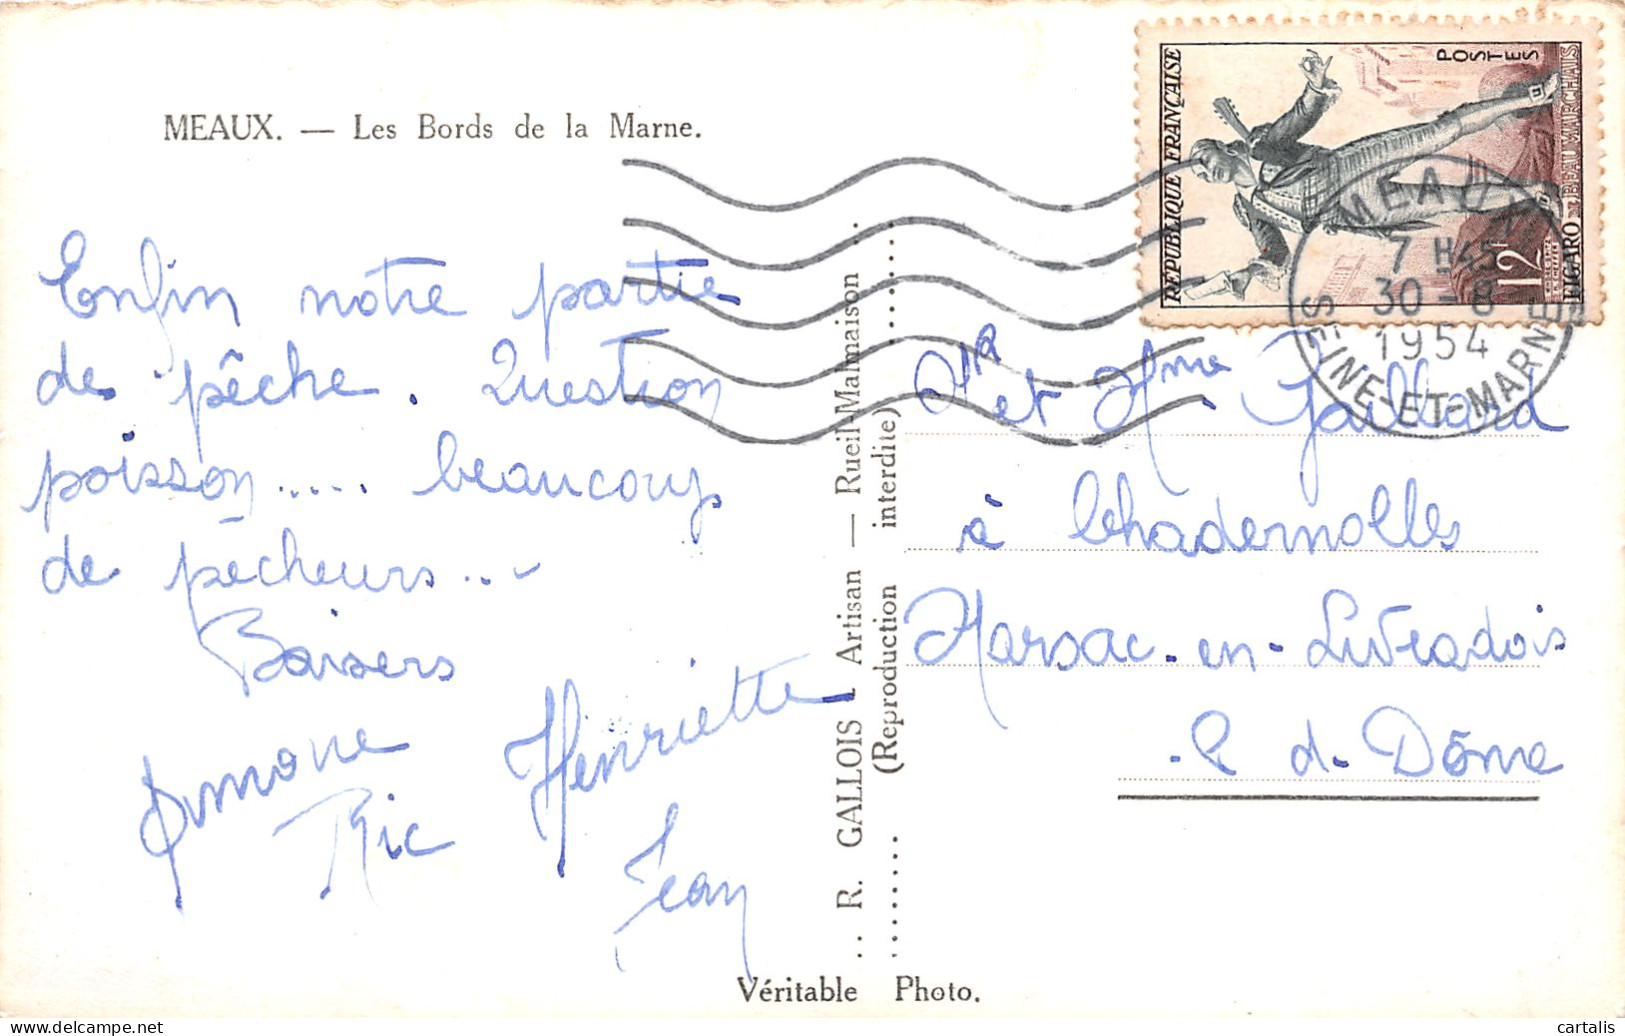 MEAUX. — Les Bords de la Marne.
Enfin notre partie
de pêche. Question
poisson..... beaucoup
de pêcheurs...
Baisers
Simone
Henriette
Ric
Jean
.. R. GALLOIS — Artisan — Rueil-Malmaison ..
(Reproduction interdite)
Véritable Photo.
RÉPUBLIQUE FRANÇAISE
POSTES
12F
FIGARO - BEAUMARCHAIS
MEAUX
7 H45
30 - 8
1954
SEINE-ET-MARNE
Mr et Mme Gaillard
à Chadernolles
Marsac-en-Livradois
P. d. Dôme
cartalis